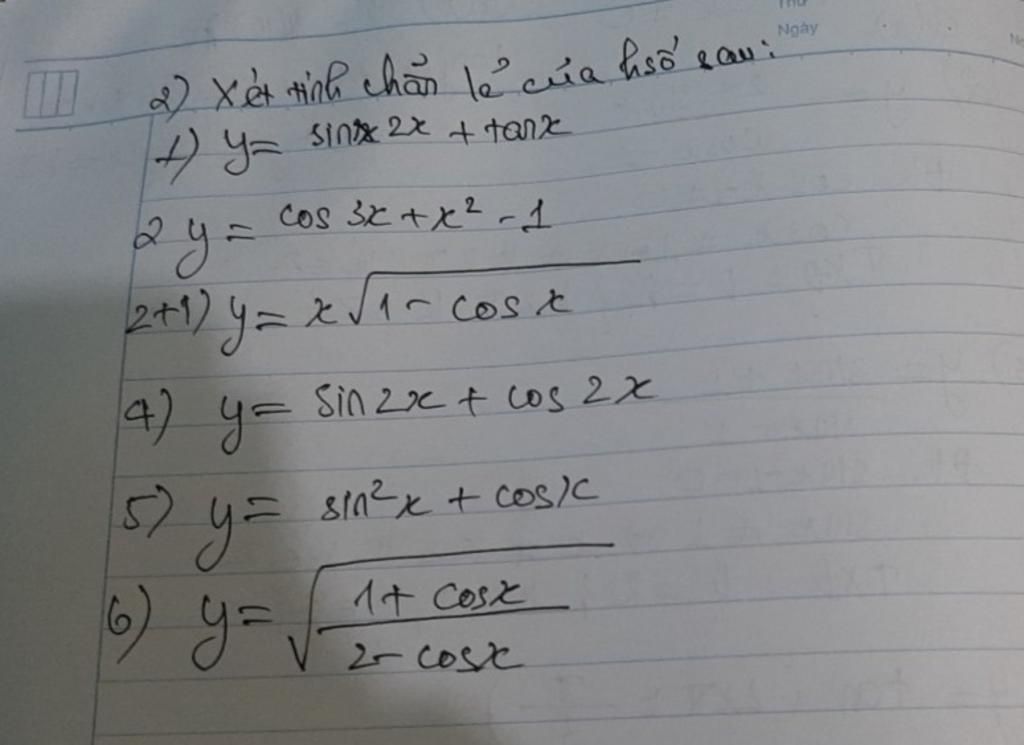 Thứ
Ngày
2) Xét tính chẵn lẻ của hsố sau:
1) y = sin 2x + tanx
2 y = cos 3x + x² - 1
2+1) y = x√(1 - cos x)
4) y = sin 2x + cos 2x
5) y = sin²x + cosx
6) y = √((1 + cosx)/(2 - cosx))